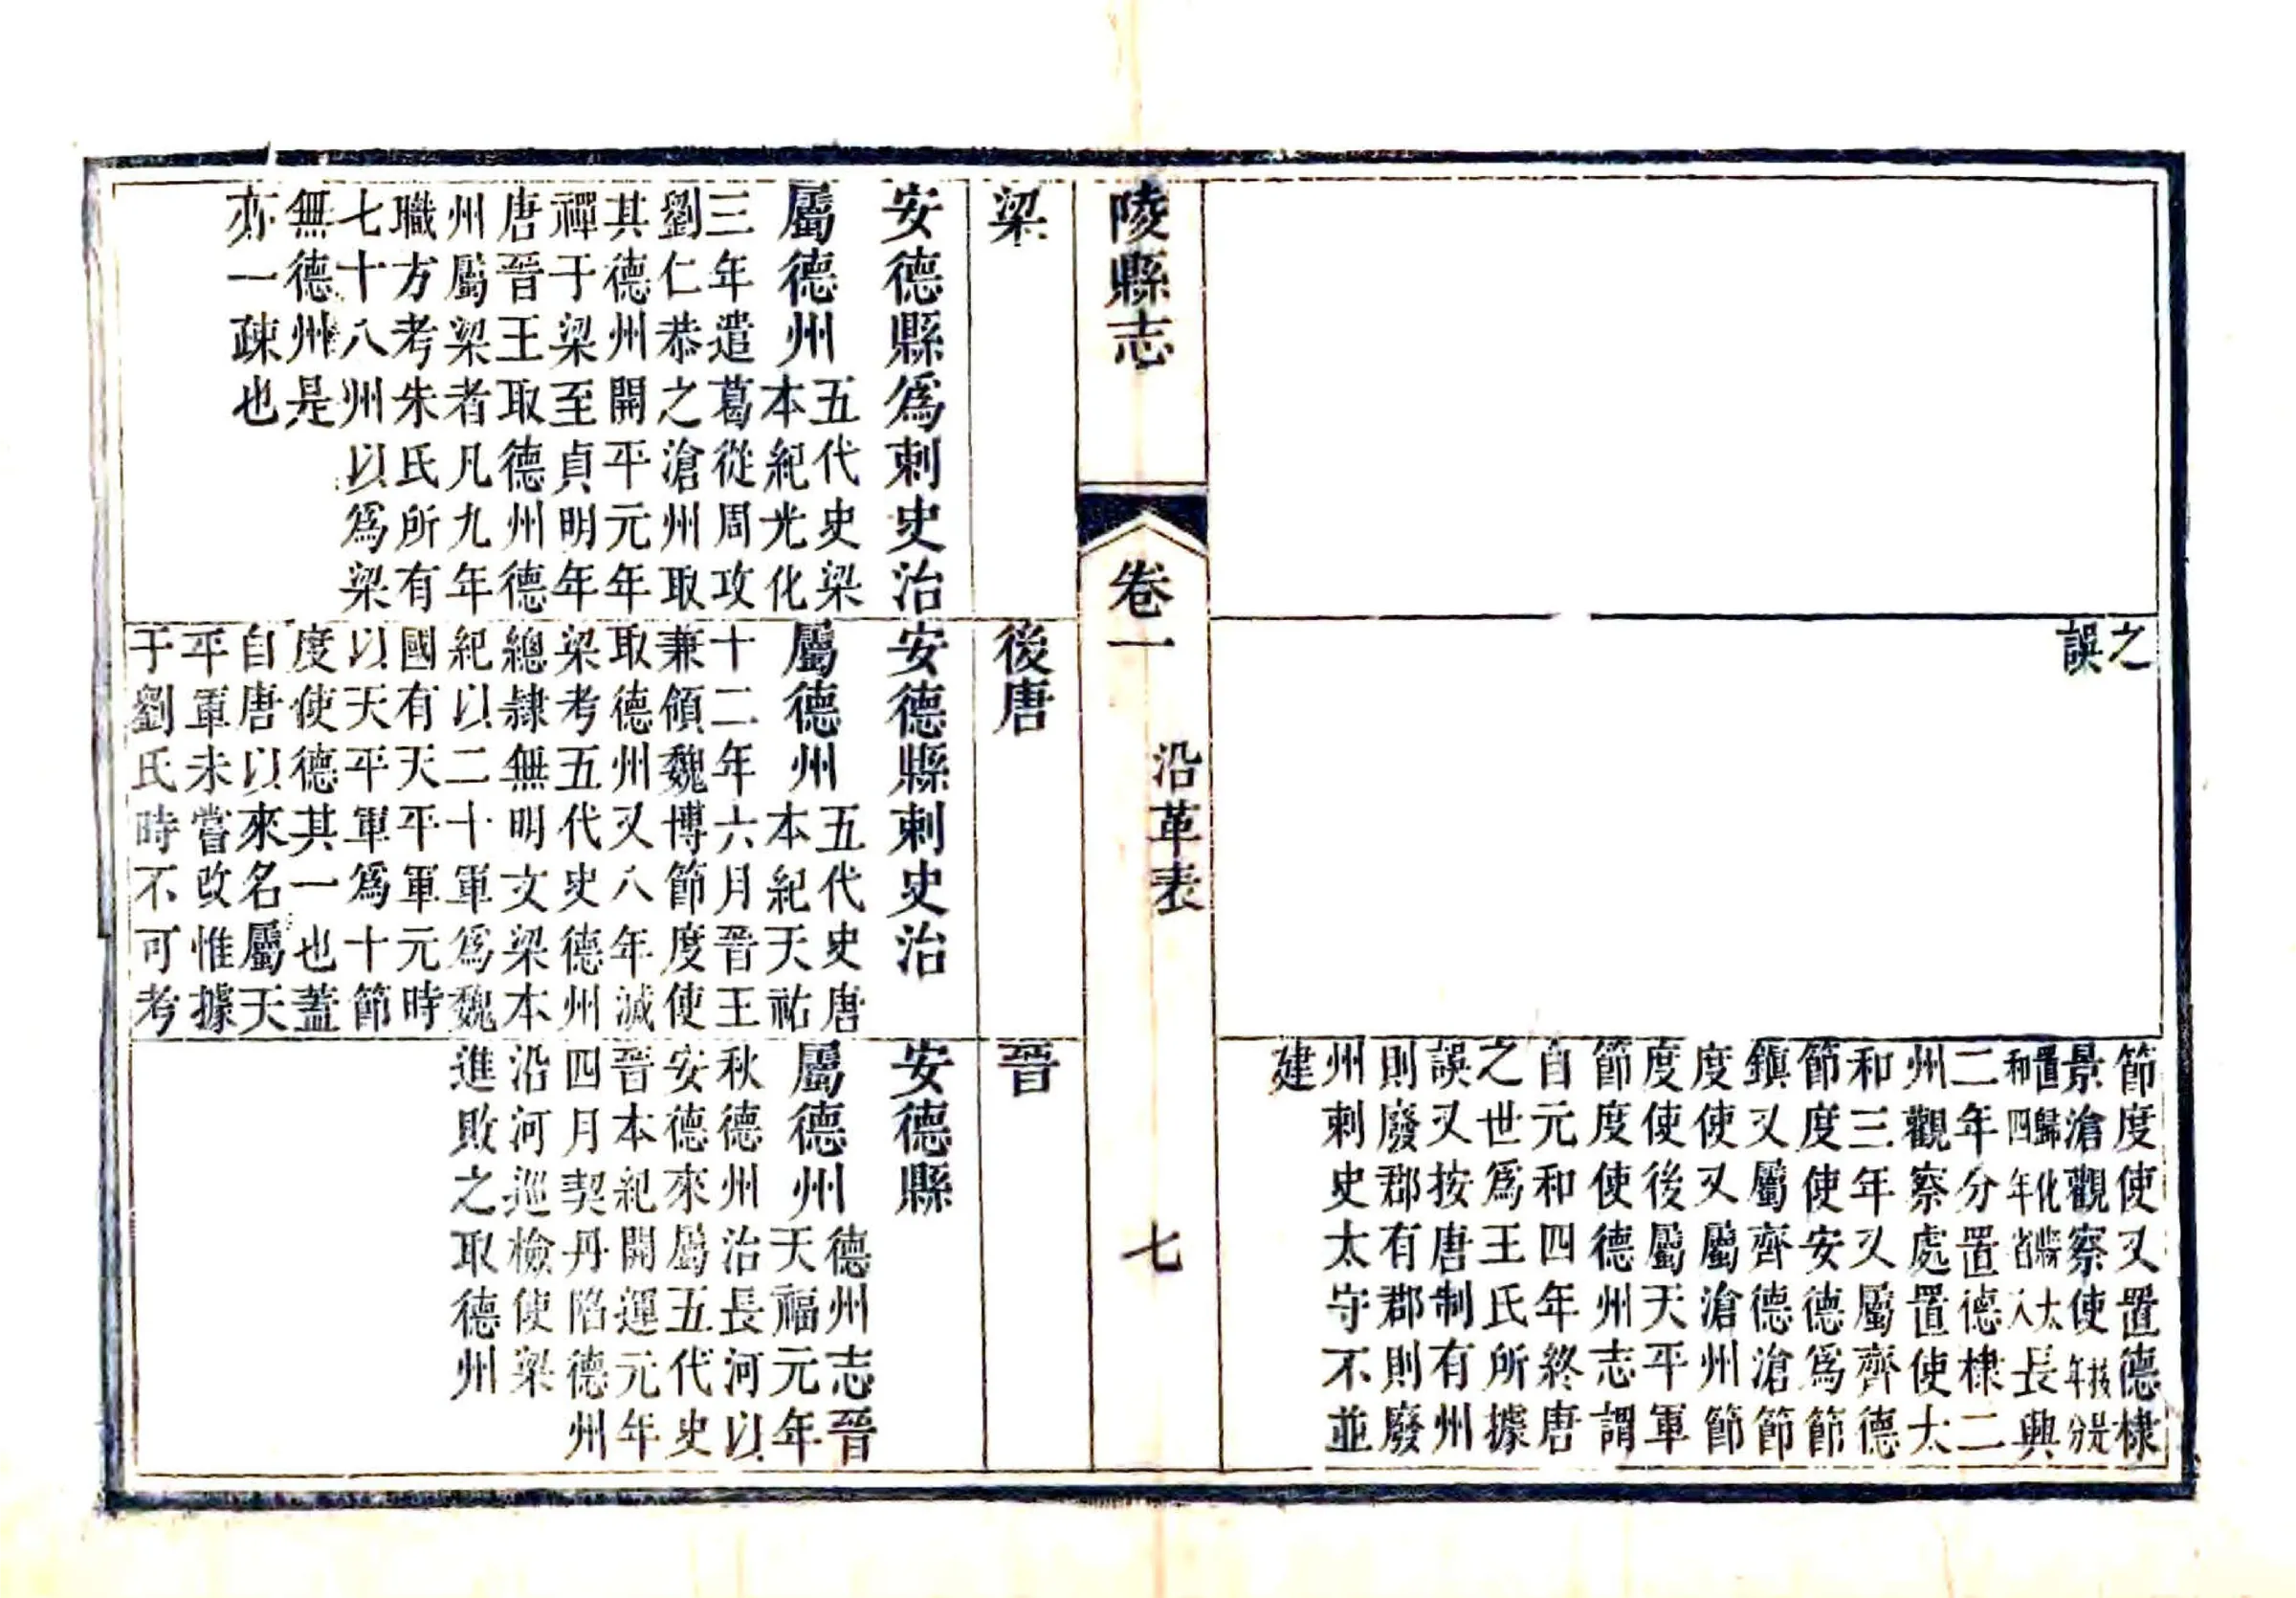 之
誤
節度使又置德棣
景滄觀察使
置歸化
和四年省入
長興
二年分置德棣二
州觀察處置使太
和三年又屬齊德
節度使安德為節
鎮又屬齊德滄節
度使又屬滄州節
度使後屬天平軍
節度使德州志謂
自元和四年終唐
之世爲王氏所據
誤又按唐制有州
則廢郡有郡則廢
州刺史太守不並
建
陵縣志
卷一
沿革表
七
梁
安德縣爲刺史治
屬德州
五代史梁
本紀光化
三年遣葛從周攻
劉仁恭之滄州取
其德州開平元年
禪于梁至貞明年
唐晉王取德州德
州屬梁者凡九年
職方考朱氏所有
七十八州以爲梁
無德州是
亦一疎也
後唐
安德縣刺史治
屬德州
五代史唐
本紀天祐
十二年六月晉王
兼領魏博節度使
取德州又八年滅
梁考五代史德州
總隷無明文梁本
紀以二十軍爲魏
國有天平軍元時
以天平軍爲十節
度使德其一也蓋
自唐以來名屬天
平軍未嘗改惟據
于劉氏時不可考
晉
安德縣
屬德州
德州志晉
天福元年
秋德州治長河以
安德來屬五代史
晉本紀開運元年
四月契丹陷德州
沿河巡檢使梁
進敗之取德州